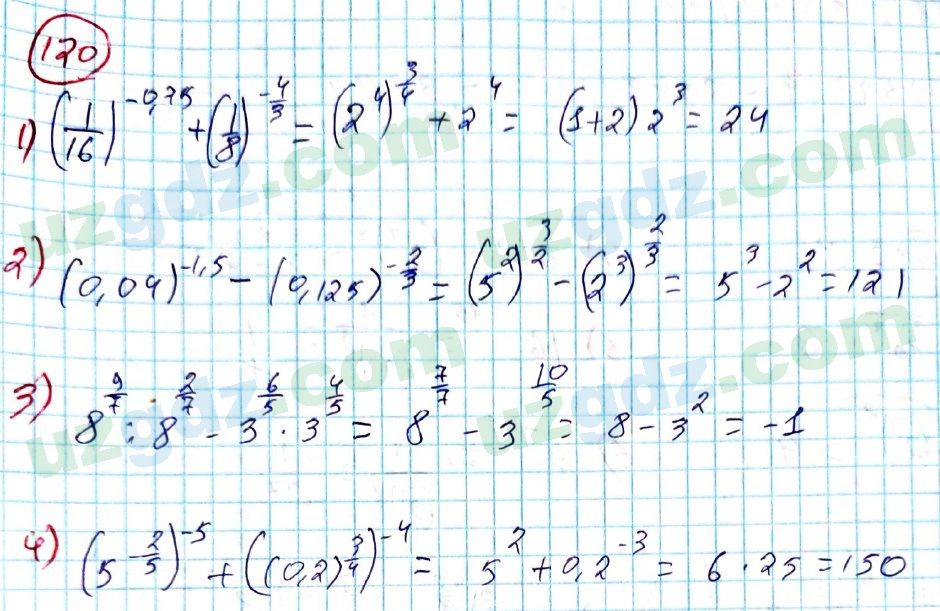 120
1) (1/16)^(-0,75) + (1/8)^(-4/3) = (2^4)^(3/4) + 2^4 = (1+2) 2^3 = 24
2) (0,04)^(-1,5) - (0,125)^(-2/3) = (5^2)^(3/2) - (2^3)^(2/3) = 5^3 - 2^2 = 121
3) 8^(9/7) : 8^(2/7) - 3^(6/5) · 3^(4/5) = 8^(7/7) - 3^(10/5) = 8 - 3^2 = -1
4) (5^(-2/5))^(-5) + ((0,2)^(3/4))^(-4) = 5^2 + 0,2^(-3) = 6 · 25 = 150
uzgdz.com uzgdz.com
uzgdz.com uzgdz.com